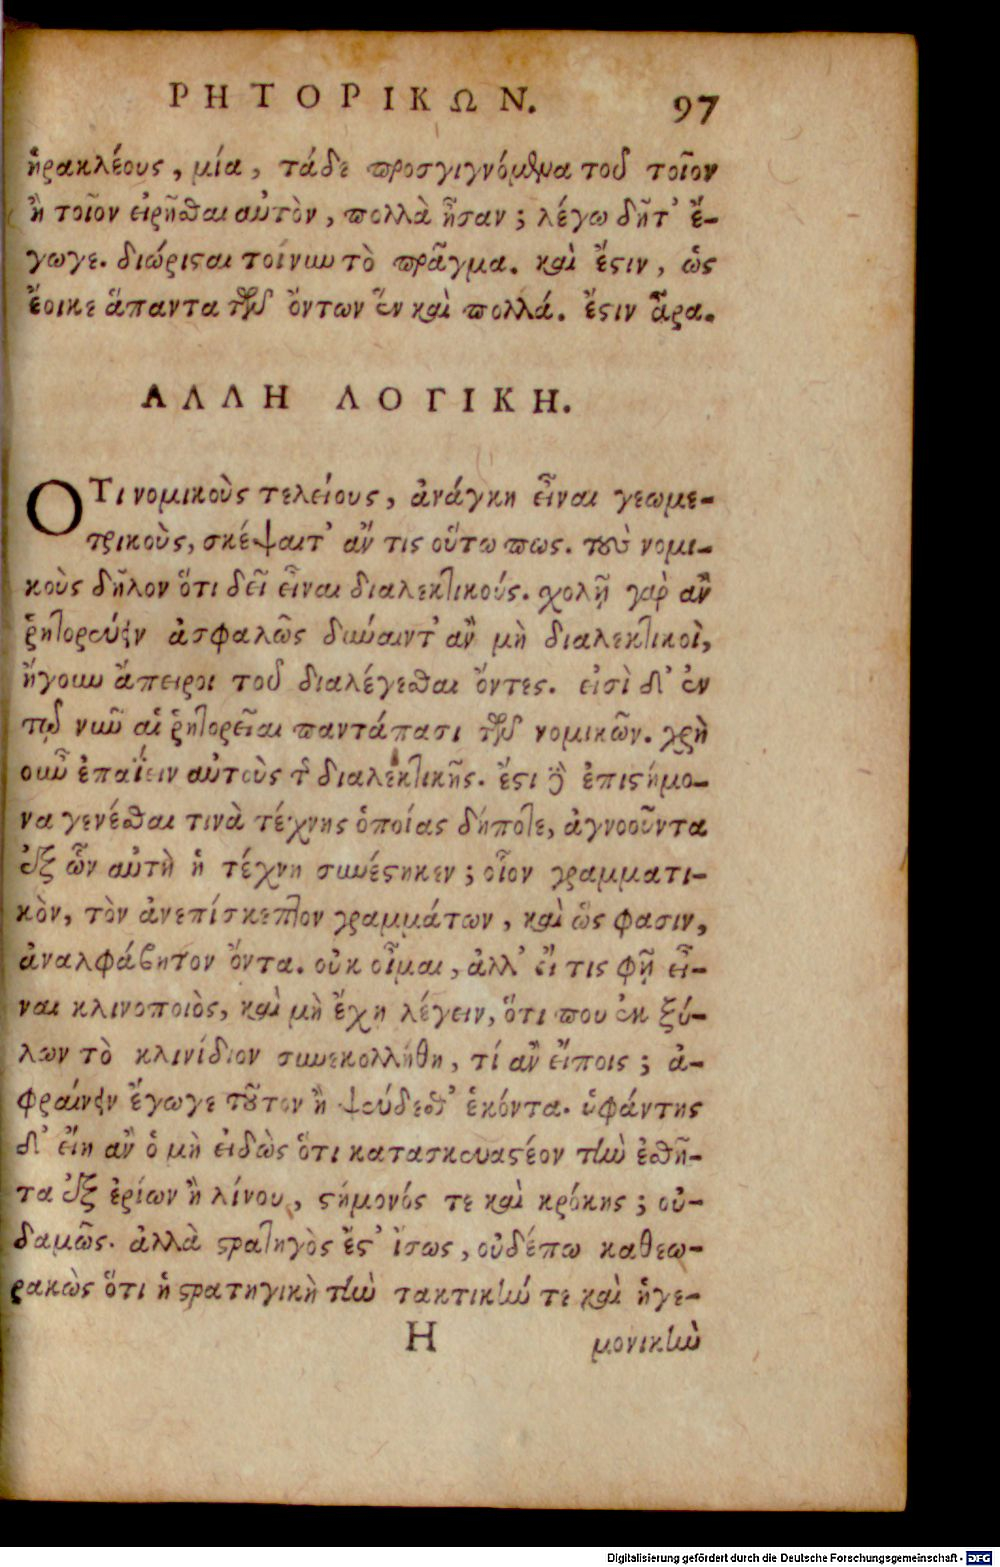 ΡΗΤΟΡΙΚΩΝ. 97
ἡρακλέους, μία, τάδε προσγιγνόμενα τοῦ τοῖον
ἢ τοῖον εἰρῆσθαι αὐτὸν, πολλὰ ἦσαν; λέγω δῆτ' ἔ-
γωγε. διώρισαι τοίνυν τὸ πρᾶγμα. καὶ ἔστιν, ὡς
ἔοικε ἅπαντα τῶν ὄντων ἓν καὶ πολλά. ἔστιν ἆρα.
ΑΛΛΗ ΛΟΓΙΚΗ.
ΟΤι νομικοὺς τελείους, ἀνάγκη εἶναι γεωμε-
τρικοὺς, σκέψαιτ' ἄν τις οὕτω πως. τοὺς νομι-
κοὺς δῆλον ὅτι δεῖ εἶναι διαλεκτικούς. χολῇ γὰρ ἂν
ῥητορεύειν ἀσφαλῶς δύναιντ' ἂν μὴ διαλεκτικοὶ,
ἤγουν ἄπειροι τοῦ διαλέγεσθαι ὄντες. εἰσὶ δ' ἐν
τῷ νῦν αἱ ῥητορεῖαι παντάπασι τῶν νομικῶν. χρὴ
οὖν ἐπαΐειν αὐτοὺς τῆς διαλεκτικῆς. ἔστι γὰρ ἐπιστήμο-
να γενέσθαι τινὰ τέχνης ὁποίας δήποτε, ἀγνοοῦντα
ἐξ ὧν αὐτὴ ἡ τέχνη συνέστηκεν; οἷον γραμματι-
κὸν, τὸν ἀνεπίσκεπτον γραμμάτων, καὶ ὥς φασιν,
ἀναλφάβητον ὄντα. οὐκ οἶμαι, ἀλλ' εἴ τις φῇ εἶ-
ναι κλινοποιὸς, καὶ μὴ ἔχῃ λέγειν, ὅτι που ἐκ ξύ-
λων τὸ κλινίδιον συνεκολλήθη, τί ἂν εἴποις; ἀ-
φραίνειν ἔγωγε τοῦτον ἢ ψεύδεσθ' ἑκόντα. ὑφάντης
δ' εἴη ἂν ὁ μὴ εἰδὼς ὅτι κατασκευαστέον τὴν ἐσθῆ-
τα ἐξ ἐρίων ἢ λίνου, στήμονός τε καὶ κρόκης; οὐ-
δαμῶς. ἀλλὰ στρατηγὸς ἔστ' ἴσως, οὐδέπω καθεω-
ρακὼς ὅτι ἡ στρατηγικὴ τὴν τακτικήν τε καὶ ἡγε-
Η μονικὴν
Digitalisierung gefördert durch die Deutsche Forschungsgemeinschaft - DFG